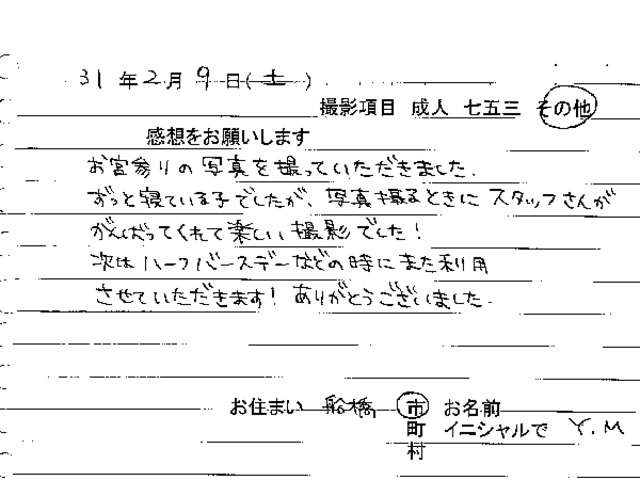 31年2月9日(土)
撮影項目 成人 七五三 その他
感想をお願いします
お宮参りの写真を撮っていただきました.
ずっと寝ている子でしたが、写真撮るときにスタッフさんが
がんばってくれて楽しい撮影でした!
次はハーフバースデーなどの時にまた利用
させていただきます! ありがとうございました.
お住まい 船橋 市 お名前
町 イニシャルで Y.M
村